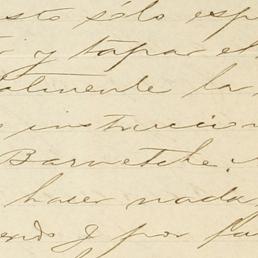 sto sólo esp
y tapar el
almente la
instruccion
Barnetche.
hacer nada
y por fa